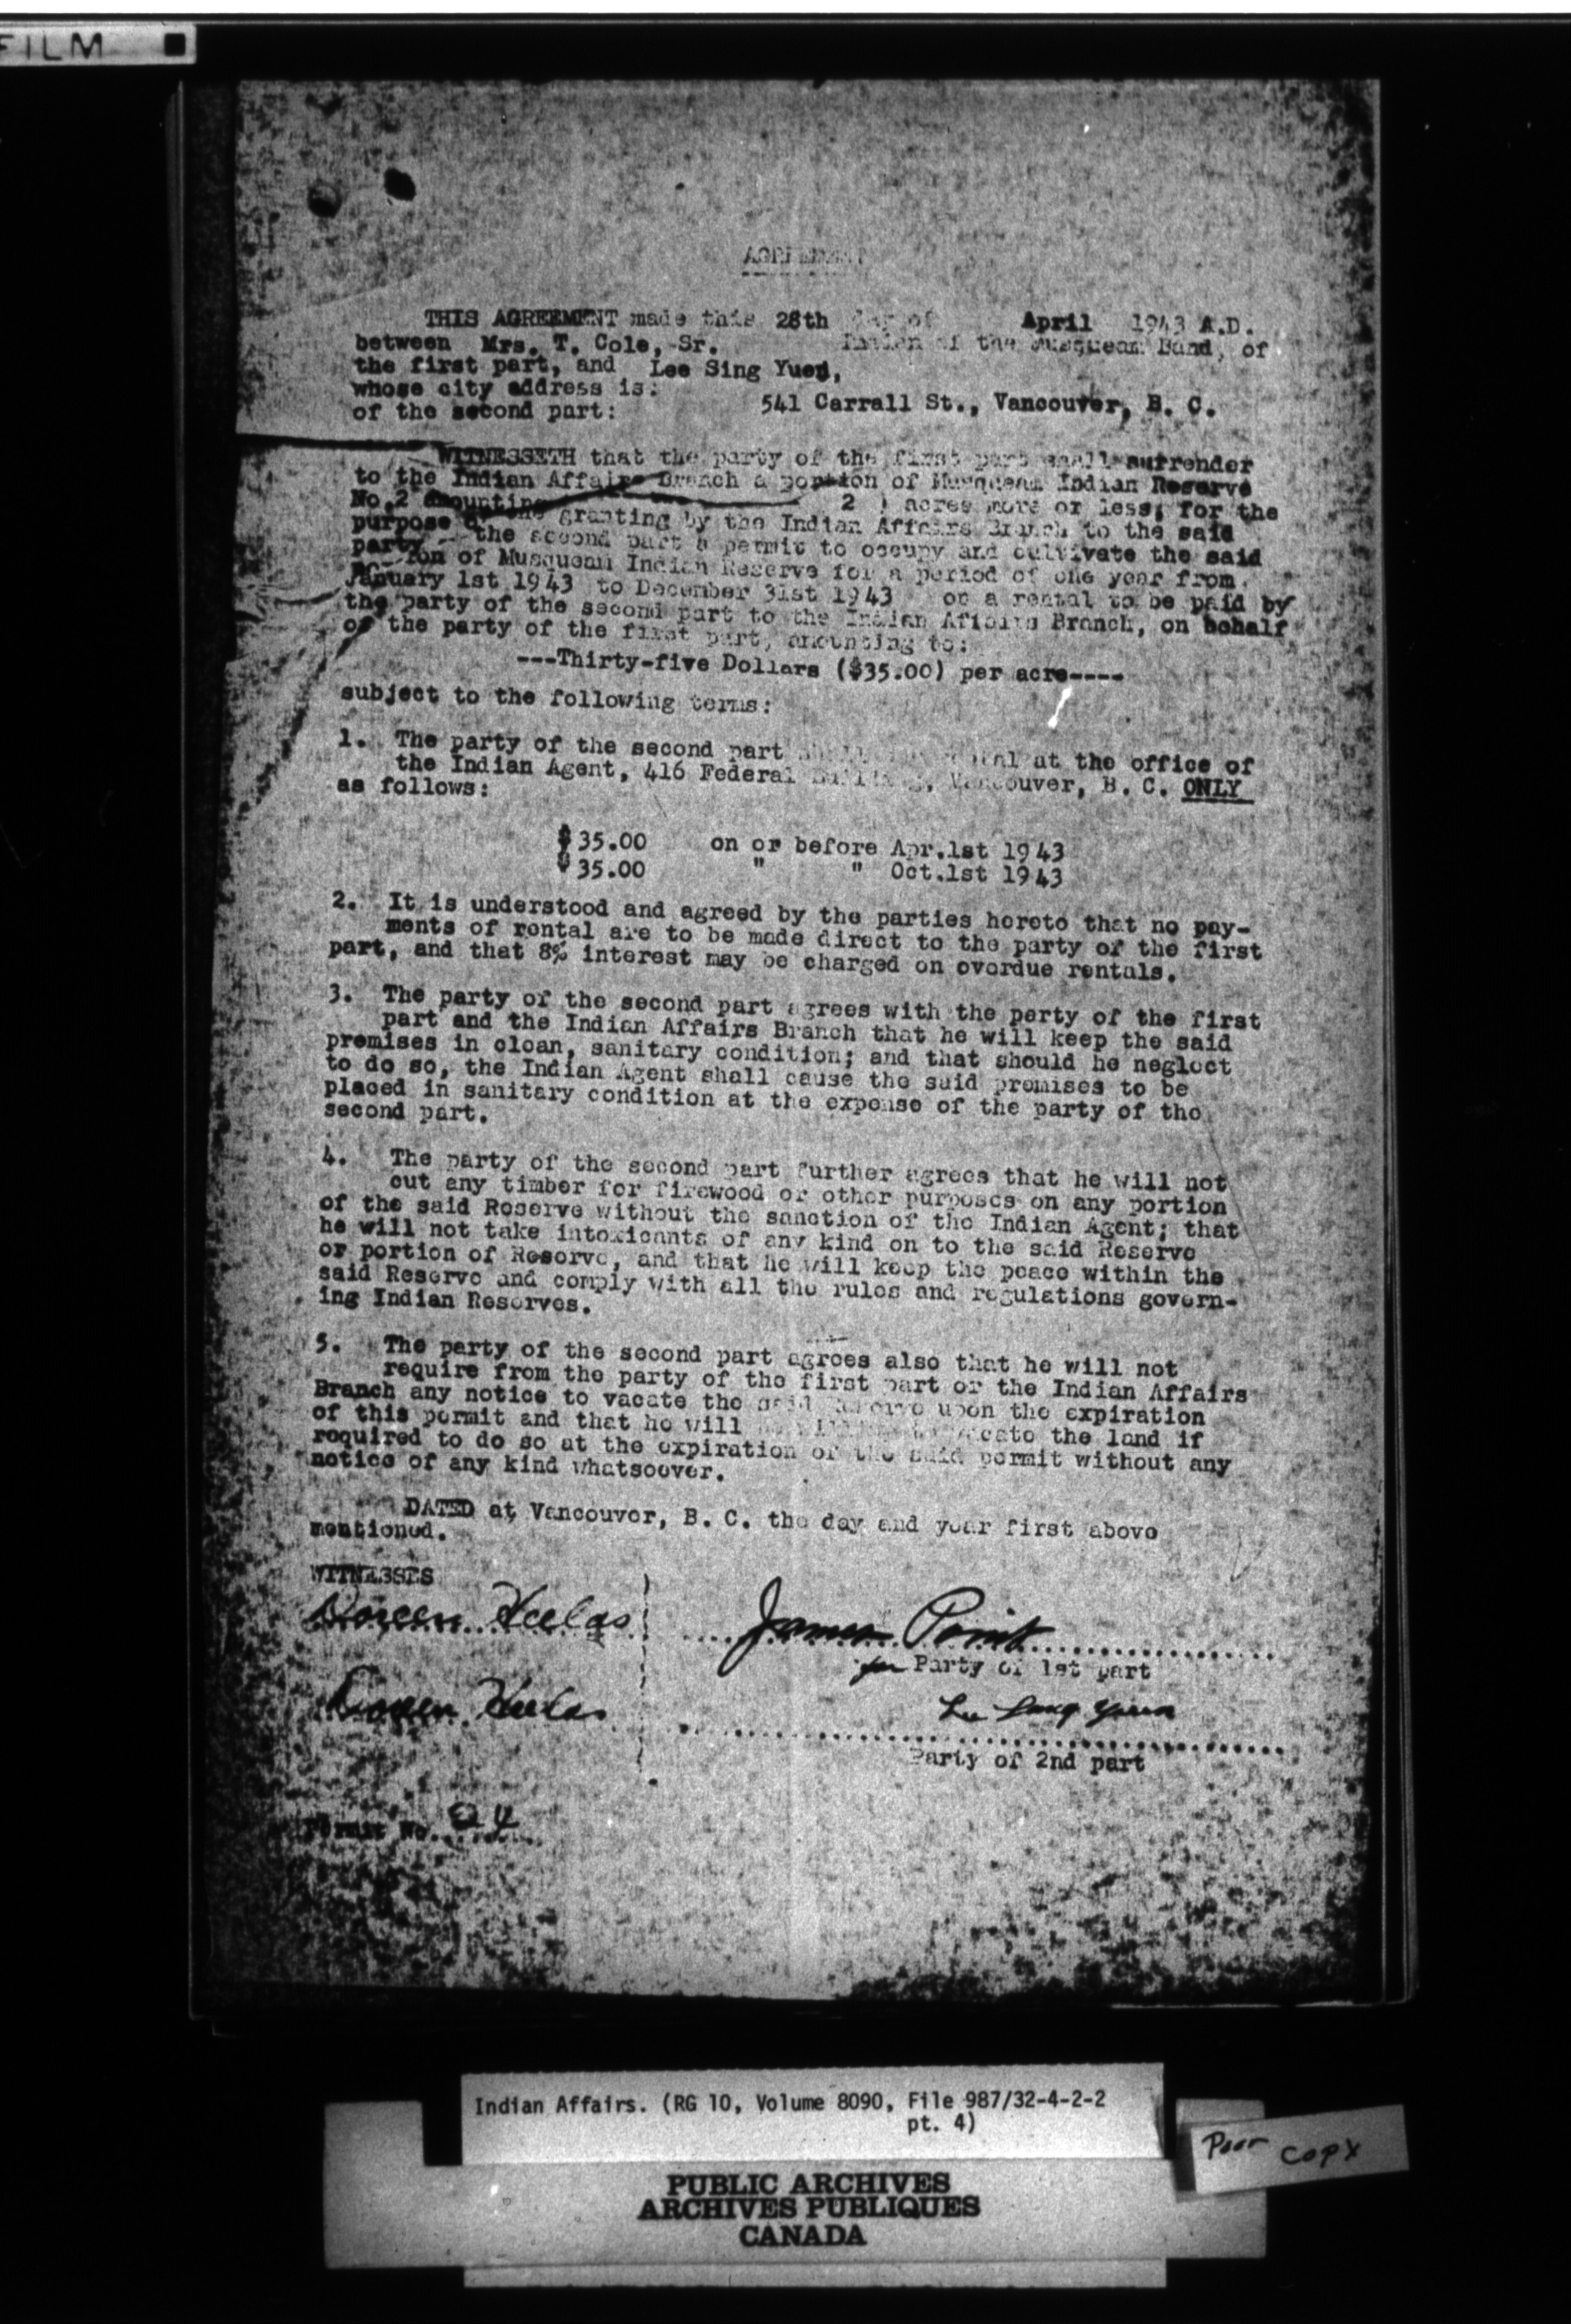 FILM
AGREEMENT
THIS AGREEMENT made this 28th day of April 1943 A.D.
between Mrs. T. Cole, Sr. Indian of the Musqueam Band, of
the first part, and Lee Sing Yuen,
whose city address is:
of the second part: 541 Carrall St., Vancouver, B. C.
WITNESSETH that the party of the first part shall surrender
to the Indian Affairs Branch a portion of Musqueam Indian Reserve
No.2 amounting 2 ) acres more or less; for the
purpose granting by the Indian Affairs Branch to the said
party the second part a permit to occupy and cultivate the said
ion of Musqueam Indian Reserve for a period of one year from
January 1st 1943 to December 31st 1943 on a rental to be paid by
the party of the second part to the Indian Affairs Branch, on behalf
of the party of the first part, amounting to:
---Thirty-five Dollars ($35.00) per acre----
subject to the following terms:
1. The party of the second part at the office of
the Indian Agent, 416 Federal Building, Vancouver, B. C. ONLY
as follows:
$35.00 on or before Apr.1st 1943
$35.00 " " Oct.1st 1943
2. It is understood and agreed by the parties hereto that no pay-
ments of rental are to be made direct to the party of the first
part, and that 8% interest may be charged on overdue rentals.
3. The party of the second part agrees with the party of the first
part and the Indian Affairs Branch that he will keep the said
premises in clean, sanitary condition; and that should he neglect
to do so, the Indian Agent shall cause the said premises to be
placed in sanitary condition at the expense of the party of the
second part.
4. The party of the second part further agrees that he will not
cut any timber for firewood or other purposes on any portion
of the said Reserve without the sanction of the Indian Agent; that
he will not take intoxicants of any kind on to the said Reserve
or portion of Reserve, and that he will keep the peace within the
said Reserve and comply with all the rules and regulations govern-
ing Indian Reserves.
5. The party of the second part agrees also that he will not
require from the party of the first part or the Indian Affairs
Branch any notice to vacate the said Reserve upon the expiration
of this permit and that he will vacate the land if
required to do so at the expiration of the said permit without any
notice of any kind whatsoever.
DATED at Vancouver, B. C. the day and year first above
mentioned.
WITNESSES
Doreen Heelas James Point
for Party of 1st part
Doreen Heelas Lee Sing Yuen
Party of 2nd part
Permit No. 24
Indian Affairs. (RG 10, Volume 8090, File 987/32-4-2-2
pt. 4)
Poor copy
PUBLIC ARCHIVES
ARCHIVES PUBLIQUES
CANADA